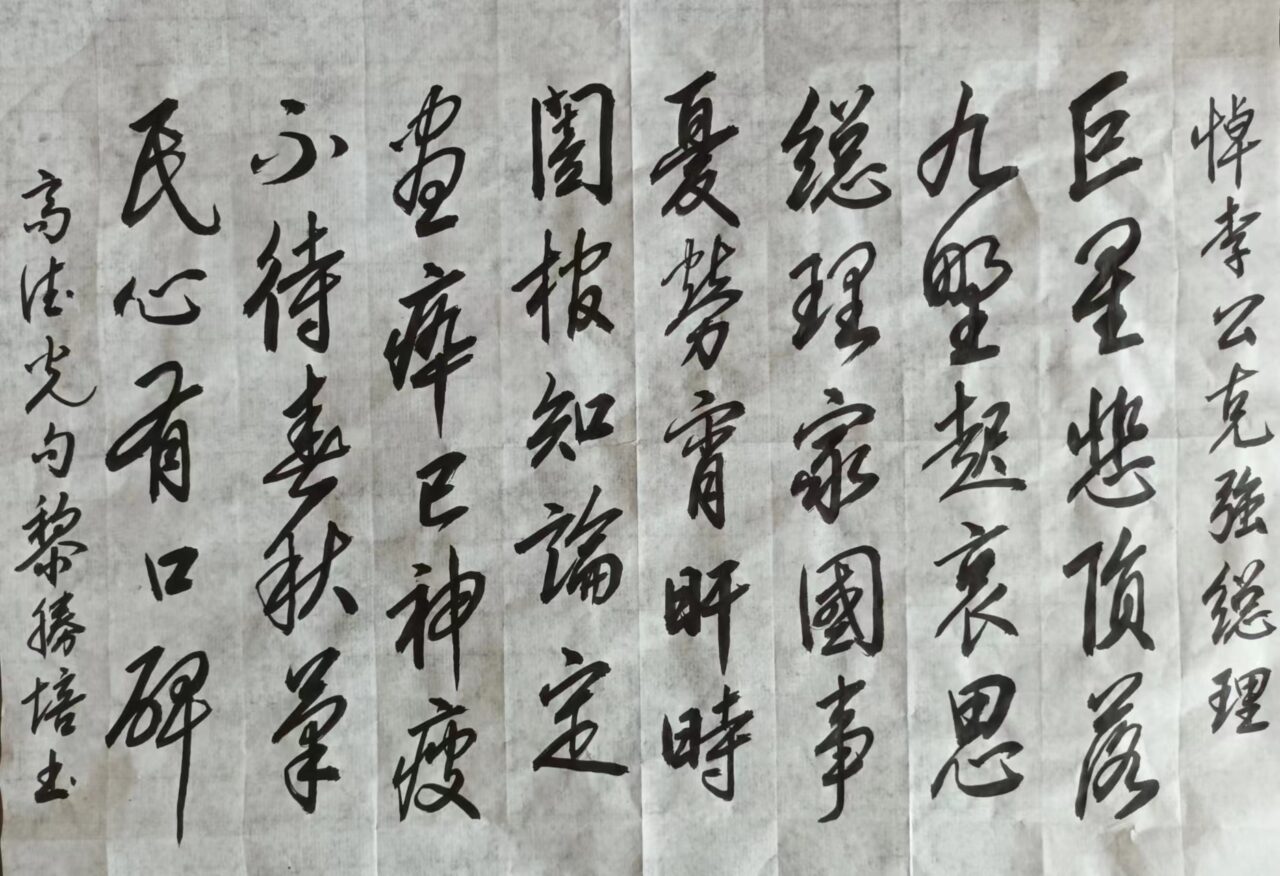 悼李公克強総理
巨星悲隕落
九野起哀思
総理家國事
憂勞宵旰時
闔棺知論定
尽瘁已神疲
不待春秋筆
民心有口碑
高德光句黎勝培書